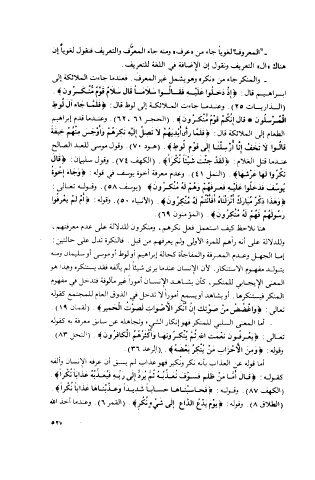 ـ "المعروف" لغوياً جاء من «عرف» ومنه جاء المعرَّف والتعريف فنقول لغوياً إن
هناك «ال» التعريف ونقول إن الإضافة في اللغة للتعريف.
ـ والمنكر جاء من «نكر» وهو يشمل غير المعرف. فعندما جاءت الملائكة إلى
إبراهيم قال: ﴿إِذْ دَخَلُوا عَلَيْهِ فَقَالُوا سَلَاماً قَالَ سَلَامٌ قَوْمٌ مُّنكَرُونَ﴾.
(الذاريات ٢٥) وعندما جاءت الملائكة إلى لوط قال: ﴿فَلَمَّا جَاءَ آلَ لُوطٍ
الْمُرْسَلُونَ * قَالَ إِنَّكُمْ قَوْمٌ مُّنكَرُونَ﴾. (الحجر ٦١، ٦٢) وعندما قدم إبراهيم
الطعام إلى الملائكة قال: ﴿فَلَمَّا رَأَى أَيْدِيَهُمْ لَا تَصِلُ إِلَيْهِ نَكِرَهُمْ وَأَوْجَسَ مِنْهُمْ خِيفَةً
قَالُوا لَا تَخَفْ إِنَّا أُرْسِلْنَا إِلَى قَوْمِ لُوطٍ﴾. (هود ٧٠) وقول موسى للعبد الصالح
عندما قتل الغلام: ﴿لَّقَدْ جِئْتَ شَيْئاً نُّكْراً﴾. (الكهف ٧٤). وقول سليمان: ﴿قَالَ
نَكِّرُوا لَهَا عَرْشَهَا﴾. (النمل ٤١). وعدم معرفة أخوة يوسف في قوله: ﴿وَجَاءَ إِخْوَةُ
يُوسُفَ فَدَخَلُوا عَلَيْهِ فَعَرَفَهُمْ وَهُمْ لَهُ مُنكِرُونَ﴾. (يوسف ٥٨). وقوله تعالى:
﴿وَهَذَا ذِكْرٌ مُّبَارَكٌ أَنزَلْنَاهُ أَفَأَنتُمْ لَهُ مُنكِرُونَ﴾. (الأنبياء ٥٠). وقوله: ﴿أَمْ لَمْ يَعْرِفُوا
رَسُولَهُمْ فَهُمْ لَهُ مُنكِرُونَ﴾. (المؤمنون ٦٩)
هنا نلاحظ كيف استعمل فعل نكرهم، ومنكرون للدلالة على عدم معرفتهم،
وللدلالة على أنه رآهم للمرة الأولى ولم يعرفهم من قبل. فالنكرة تدل على حالتين:
إما الجهل وعدم المعرفة والمفاجأة كحالة إبراهيم أو لوط أو موسى أو سليمان ومنه
يتولد مفهوم الاستنكار. لأن الإنسان عندما يرى شيئاً لم يألفه فقد يستنكره وهذا هو
المعنى الإيجابي للمنكر، كأن يشاهد الإنسان أموراً غير مألوفة فتدخل في مفهوم
المنكر فيستنكرها. أو يشاهد أو يسمع أموراً لا تدخل في الذوق العام للمجتمع كقوله
تعالى: ﴿وَاغْضُضْ مِن صَوْتِكَ إِنَّ أَنكَرَ الْأَصْوَاتِ لَصَوْتُ الْحَمِيرِ﴾. (لقمان ١٩)
أما المعنى السلبي للمنكر فهو إنكار الشيء وتجاهله عن سابق معرفة به كقوله
تعالى: ﴿يَعْرِفُونَ نِعْمَتَ اللَّهِ ثُمَّ يُنكِرُونَهَا وَأَكْثَرُهُمُ الْكَافِرُونَ﴾. (النحل ٨٣)
وقوله: ﴿وَمِنَ الْأَحْزَابِ مَن يُنكِرُ بَعْضَهُ﴾. (الرعد ٣٦)
أما قوله عن العذاب بأنه نكر ونكير فهو عذاب لم يسبق أن عرفه الإنسان وألفه
كقوله: ﴿قَالَ أَمَّا مَن ظَلَمَ فَسَوْفَ نُعَذِّبُهُ ثُمَّ يُرَدُّ إِلَى رَبِّهِ فَيُعَذِّبُهُ عَذَاباً نُّكْراً﴾.
(الكهف ٨٧). وقوله: ﴿فَحَاسَبْنَاهَا حِسَاباً شَدِيداً وَعَذَّبْنَاهَا عَذَاباً نُّكْراً﴾.
(الطلاق ٨). وقوله: ﴿يَوْمَ يَدْعُ الدَّاعِ إِلَى شَيْءٍ نُّكُرٍ﴾. (القمر ٦). وعندما أخذ الله
٥٢٧